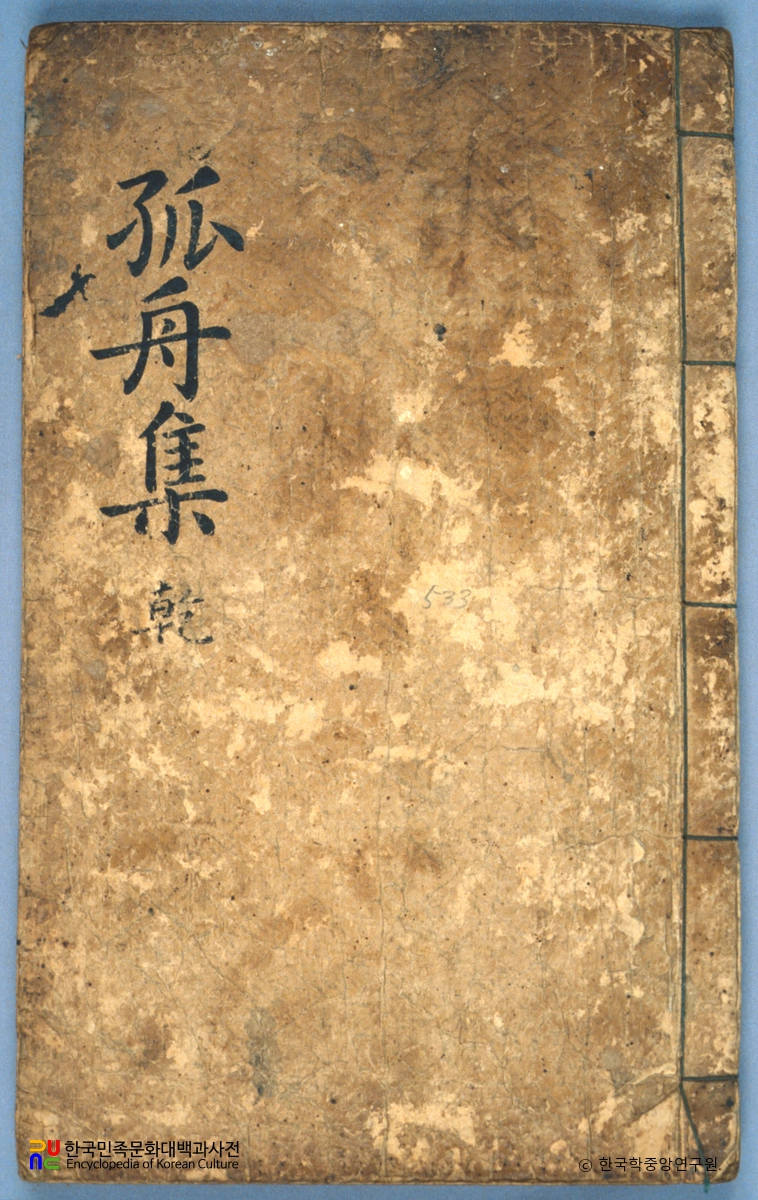 孤舟集
乾
533
한국민족문화대백과사전
Encyclopedia of Korean Culture
© 한국학중앙연구원